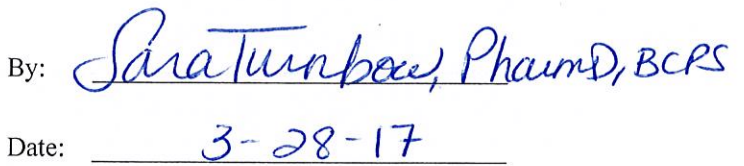 By: Sara Turnbow, PharmD, BCPS
Date: 3-28-17